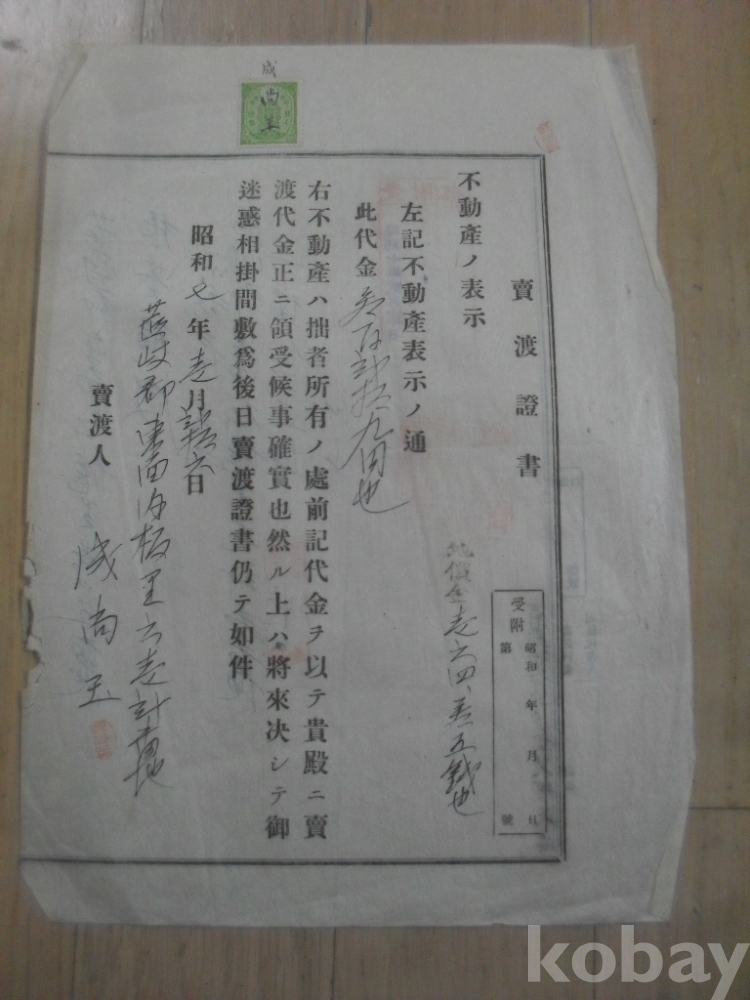 賣渡證書
受附 昭和 年 月 日
第 號
不動產ノ表示
左記不動產表示ノ通
此代金 九円也
右不動產ハ拙者所有ノ處前記代金ヲ以テ貴殿ニ賣
渡代金正ニ領受候事確實也然ル上ハ將來決シテ御
迷惑相掛間敷爲後日賣渡證書仍テ如件
昭和七年壱月 六日
郡東面 板里六壱
賣渡人 成尚玉
成
尚
kobay